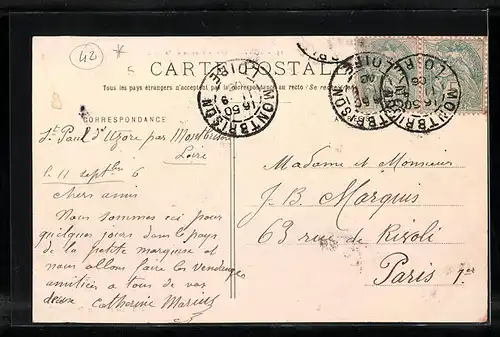 42 *
CARTE POSTALE
Tous les pays étrangers n'acceptent pas la correspondance au recto / Se
CORRESPONDANCE
MONTBRISON
16 50
11
9
LOIRE
MONTBRISON
LOIRE
MONTBRISON
LOIRE
St Paul d'Uzore par Montbrison
Loire
11 septbre 6
chers amis
Nous sommes ici pour
quelques jours dans le pays
de la petite marquise et
nous allons faire les vendanges
amitiés a tous de vos
deux Catherine
Madame et Monsieur
J. B. Marquis
63 rue de Rivoli
Paris 1er